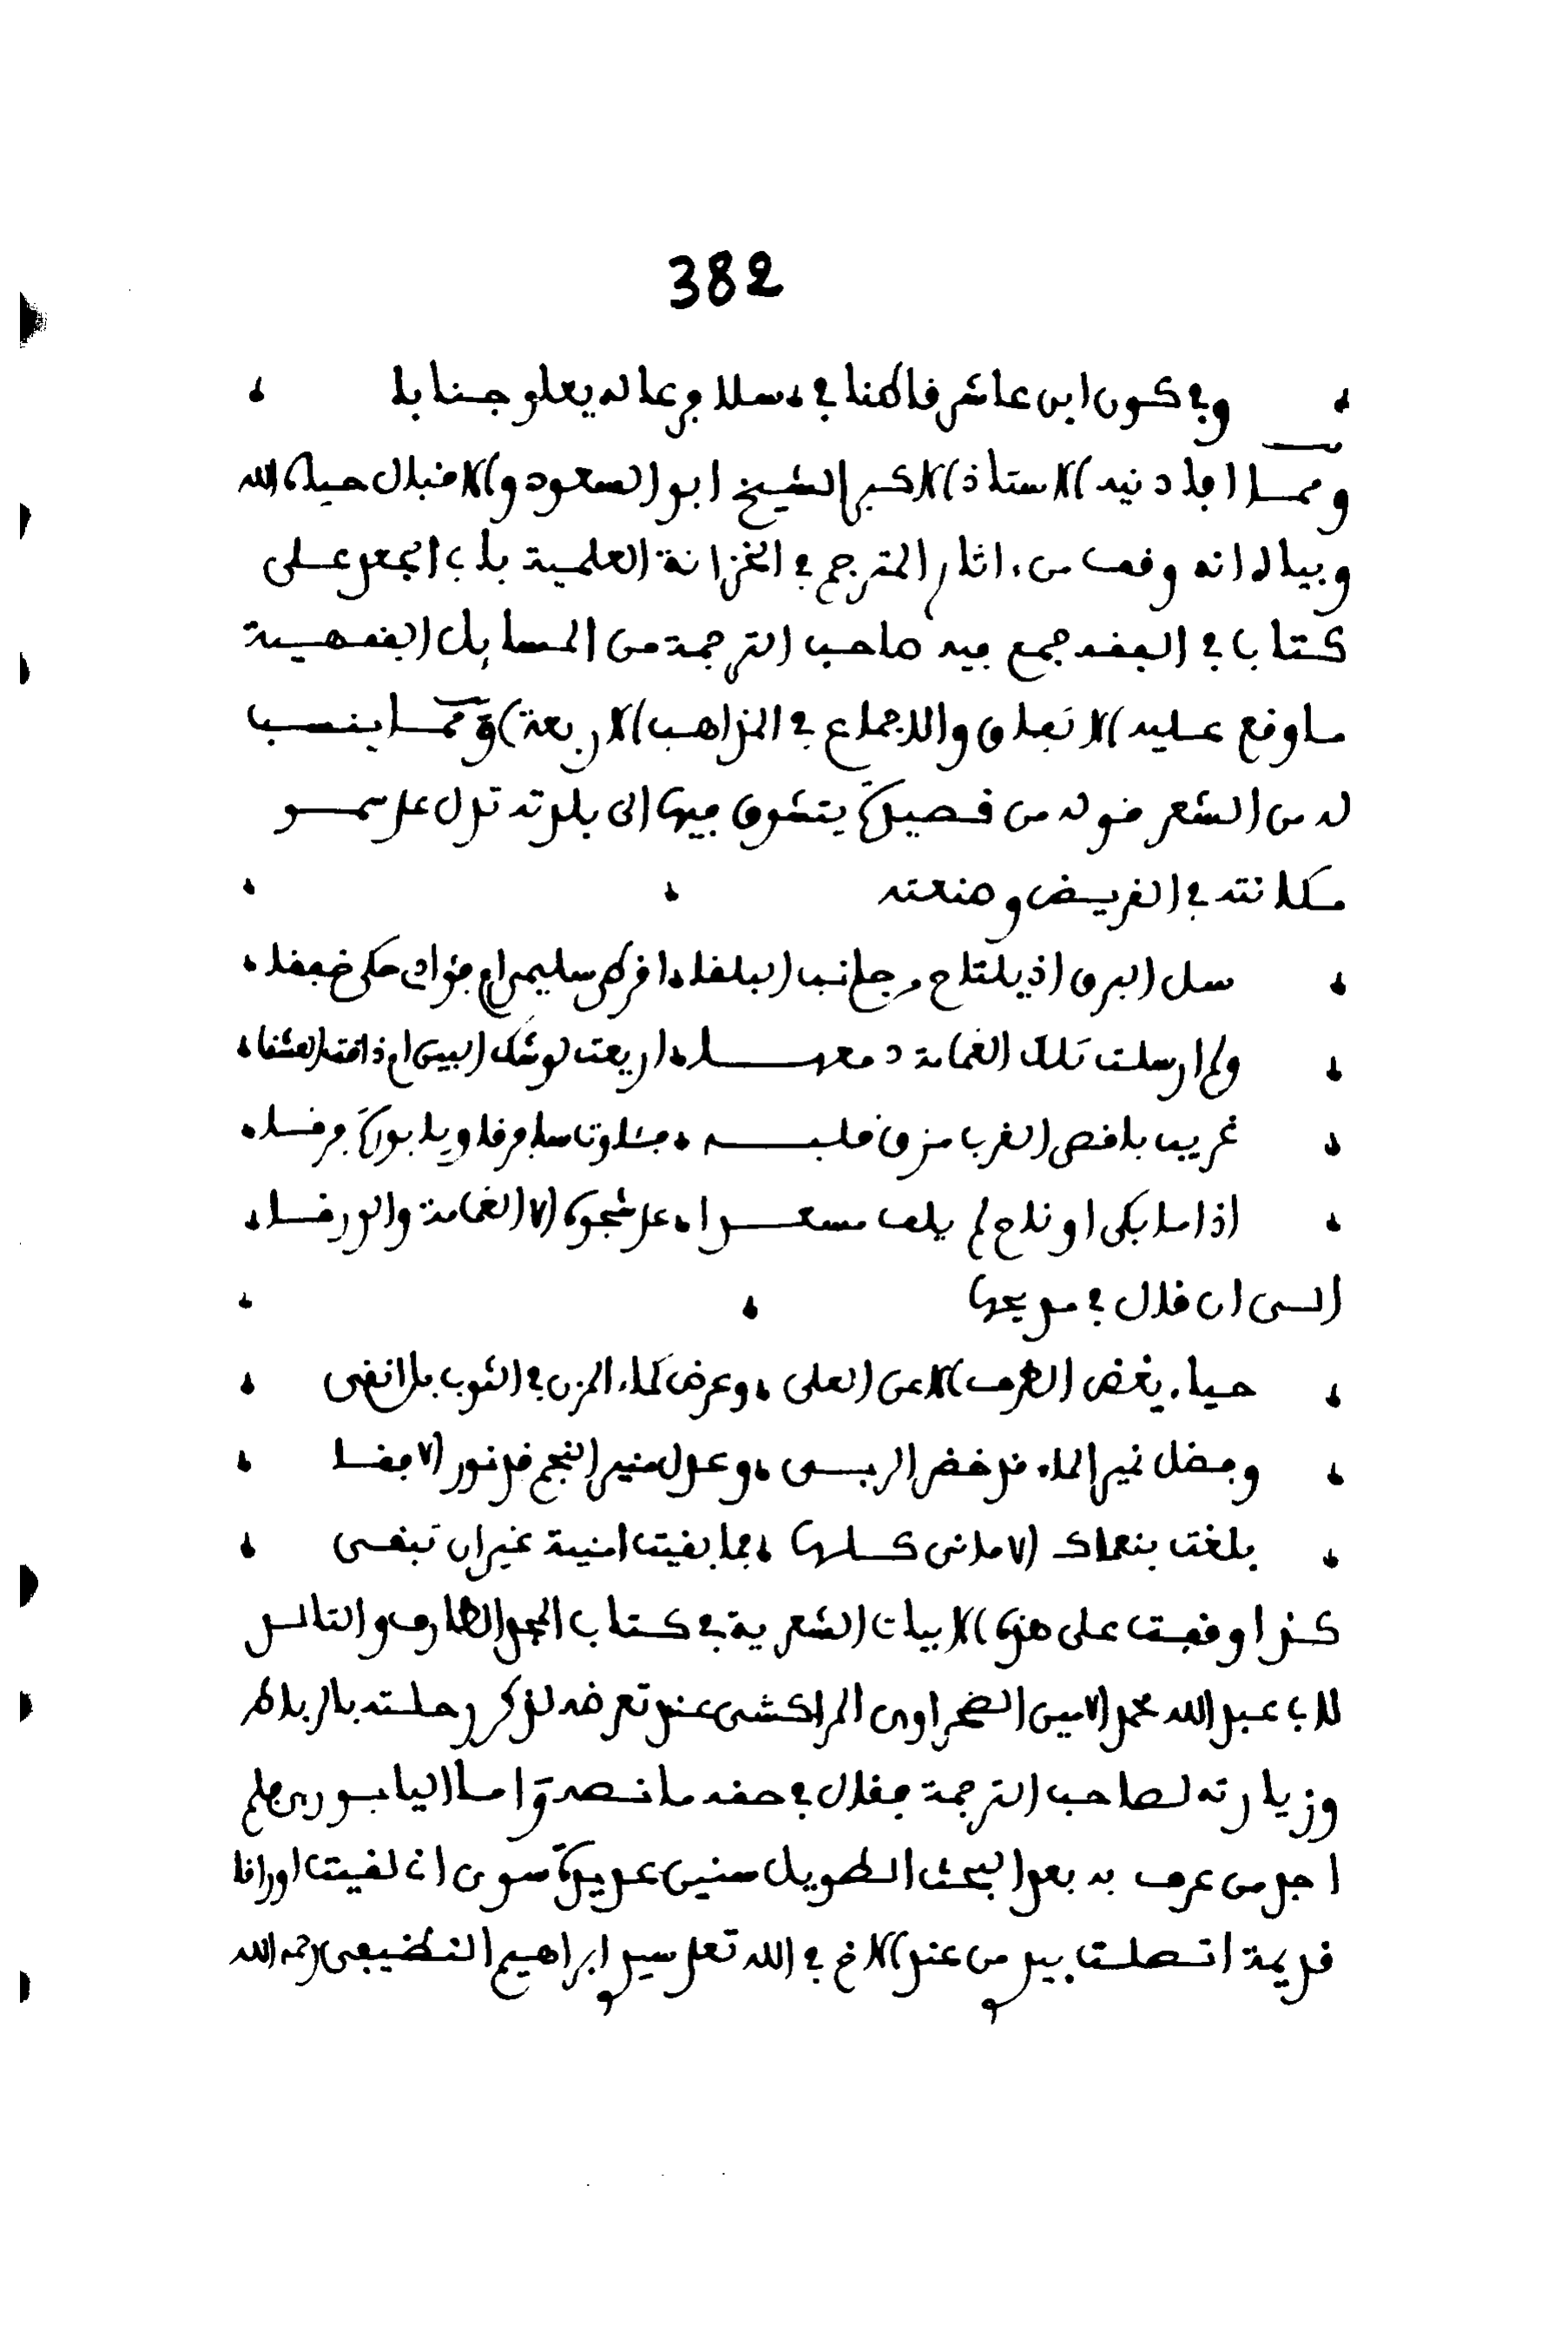 382
وفي كون ابن عاشر قاطنا في سلا مدعاة يعلو جنابا
ومما افادنيه الاستاذ الاكبر الشيخ ابو السعود والاقبال حياه الله
وبياه انه وقف من ءاثار المترجم في الخزانة العلمية بابي الجعد على
كتاب في الفقه جمع فيه صاحب الترجمة من المسايل الفقهية
ما وقع عليه الاتفاق والاجماع في المذاهب الاربعة) ومما ينسب
له من الشعر قوله من قصيدة يتشوق فيها الى بلدته تدل على سمو
مكانته في القريض وصنعته
سل البرق اذ يلتاح من جانب البلقا اقرطى سليمى ام فؤادى حكى خفقا
ولم ارسلت تلك الغمامة دمعها اريعت لوشك البين ام ذاقت العشقا
غريب باقصى الغرب مزق قلبه فثاوت سلا فرقا ويابورة فرقا
اذا ما بكى او ناح لم يلف مسعدا على شجوه الا الغمامة والورقا
الى ان قال في مديحها
حياء يغض الطرف الا عن العلى وعرض كماء المزن في الثوب بل انقى
وفضل نمير الماء قد خضر الربى وعدل منير النجم قد نور الافقا
بلغت بنعماك الامانى كلها فما بقيت امنية غير ان تبقى
كذا وقفت على هذه الابيات الشعرية في كتاب المجد الطارف والتالد
لابي عبد الله محمد الامين الصحراوى المراكشى عند تعرضه لذكر رحلته بالرباط
وزيارته لصاحب الترجمة فقال في حقه ما نصه واما اليابورى فلم
اجد من عرف به بعد البحث الطويل سنين عديدة سوى انى لقيت اوراقا
قديمة اتصلت بيدى من عند الاخ في الله تعلى سيدى ابراهيم النظيفى رحمه الله